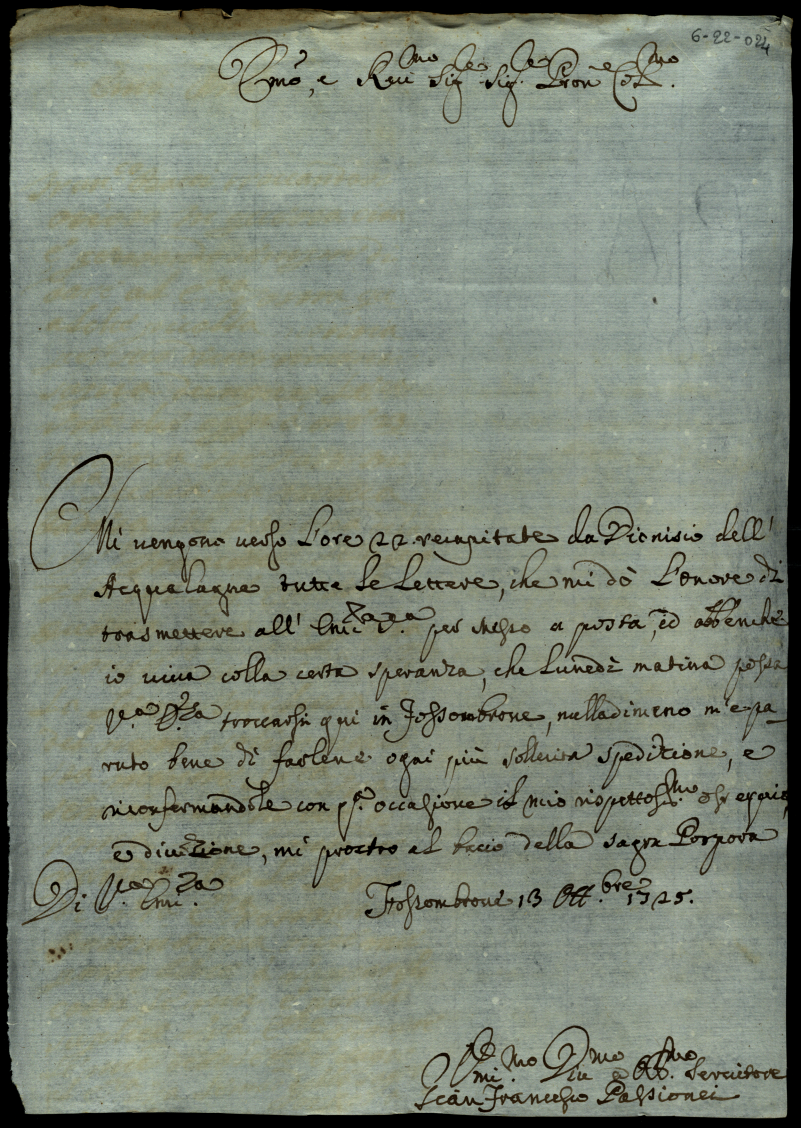 6-22-024
Emo, e Reumo Sigre Sigre Pron Colmo.
Mi vengono verso L'ore 22. recapitate da Dionisio dell'
Acqualagna tutte le Lettere, che mi dò L'onore di
trasmettere all' Emza Va. per Messo a posta, ed abbenche
io viva colla certa speranza, che Lunedì matina possa
V.a Emza trovarsi qui in Fossombrone, nulladimeno m'è pa-
ruto bene di farlene ogni più sollecita spedizione, e
riconfermandole con pr. occasione il mio rispettosmo ossequio,
e divozione, mi prostro al bacio della sagra Porpora
Di V.ra Emiza. Fossombrone 13 Ott.bre 1725.
Umimo. Divmo e Obbmo. Servitore
Gean Francesco Passionei